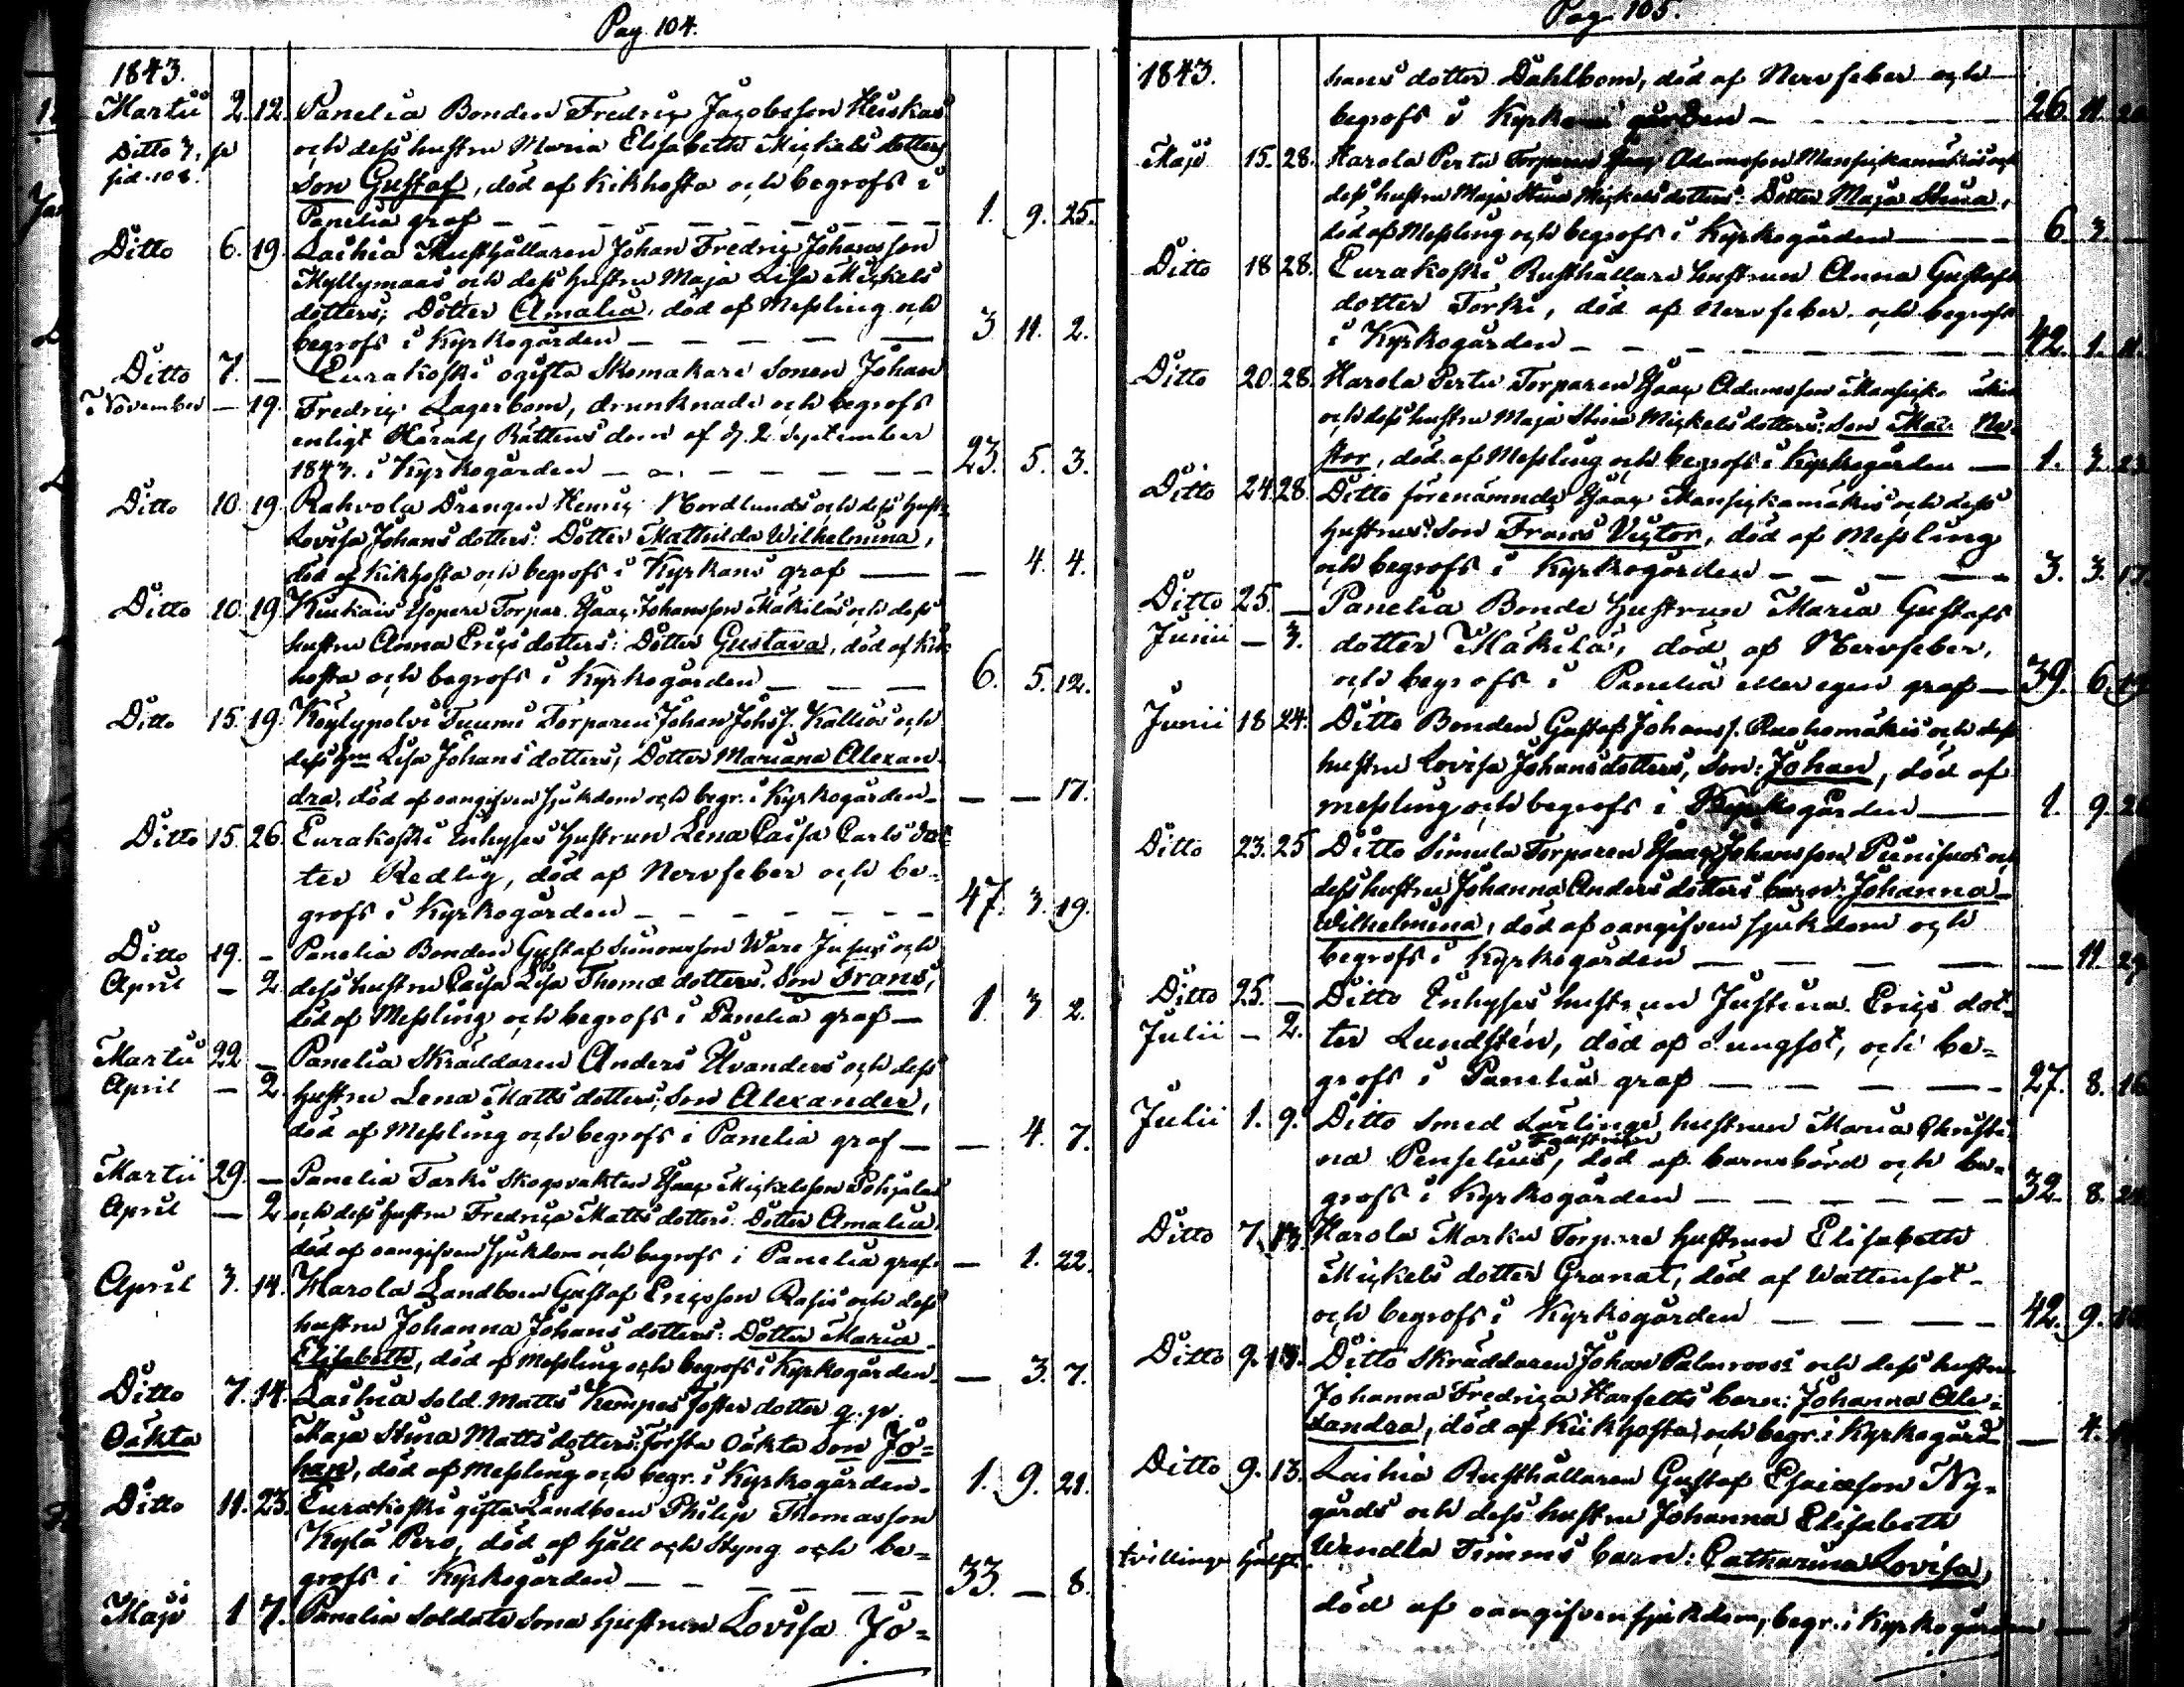 Pag. 104.
1843.
Martii 2. 12. Panelia Bonden Fredric Jacobsson Heiskas
Ditto 3, p och dess hustru Maria Elisabeth Mickels dotters
sid. 102. Son Gustaf, död af Kikhosta och begrofs i
Panelia graf — 1. 9. 25.
Ditto 6. 19. Laihia Rusthållaren Johan Fredric Johansson
Myllymaas och dess hustru Maja Lisa Mickels
dotters; Dotter Amalia, död af Messling och
begrofs i Kyrkogården — 3 11. 2.
Ditto 7. — Eurakoski ogifta Skomakare Sonen Johan
November — 19. Fredric Lagerbom, drunknade och begrofs
enligt Härads Rättens dom af d. 2 September
1843. i Kyrkogården — 23. 5. 3.
Ditto 10. 19. Rahvola Drengen Henric Nordlunds och dess hust:
Lovisa Johans dotters: Dotter Mathilda Wilhelmina,
död af Kikhosta och begrofs i Kyrkans graf — — 4. 4.
Ditto 10. 19. Kiukais Torpar. Isaac Johansson Mäkiläs och dess
hustru Anna Erics dotters: Dotter Gustava, död af Kik
hosta och begrofs i Kyrkogården — 6. 5. 12.
Ditto 15. 19. Köylypolvi Tuumi Torparen Johan Johs s. Kallios och
dess hru Lisa Johans dotters, Dotter Mariana Alexan
dra, död af oangifven sjukdom och begr. i Kyrkogården — — — 17.
Ditto 15. 26. Eurakoski Inhyses Hustrun Lena Caisa Carls dot
ter Redlig, död af Nervfeber och be=
grofs i Kyrkogården — 47. 3. 19.
Ditto 19. — Panelia Bonden Gustaf Simonsson Ware och
April — 2 dess hustru Caisa Lisa Thomæ dotters. Son Frans,
död af Messling och begrofs i Panelia graf — 1. 3 2.
Martii 22 — Panelia Skräddaren Anders Uvanders och dess
April — 2. hustru Lena Matts dotters; Son Alexander,
död af Messling och begrofs i Panelia graf — — 4. 7.
Martii 29. — Panelia Tarki Skogsvakten Isaac Mickelsson Pohjalas
April — 2 och dess hustru Fredrica Matts dotters. Dotter Amalia,
död af oangifven sjukdom och begrofs i Panelia graf. — 1. 22.
April 3. 14. Harola Landboen Gustaf Ericsson Rasis och dess
hustru Johanna Johans dotters: Dotter Maria
Elisabeth, död af Messling och begrofs i Kyrkogården — — 3. 7.
Ditto 7. 14. Laihia Sold. Matts Kempes Foster dotter q. p.
Oäkta Maja Stina Matts dotters: Första Oäkta Son Jo=
han, död af Messling och begr. i Kyrkogården. 1. 9. 21.
Ditto 11. 23. Eurakoski gifta Landboen Philip Thomasson
Kylä Pero, död af Håll och Styng och be=
grofs i Kyrkogården — 33. — 8.
Maji 1 7. Panelia Soldats Sona Hustrun Lovisa Jo=
Pag. 105.
1843. hans dotter Dahlbom, död af Nervfeber och
begrofs i Kyrkogården — 26. 11.
Maji 15. 28. Harola Pertu Torparen Isaac Adamsson Mansickamäkis och
dess hustru Maja Stina Mickels dotters: Dotter Maja Stina,
död af Messling och begrofs i Kyrkogården — 6. 3. —
Ditto 18 28. Eurakoski Rusthållare Hustrun Anna Gustafs
dotter Torki, död af Nervfeber och begrofs
i Kyrkogården — 42. 1. 11.
Ditto 20. 28. Harola Pertu Torparen Isaac Adamsson
och dess hustru Maja Stina Mickels dotters: Son Ne-
stor, död af Messling och begrofs i Kyrkogården — 1. 3.
Ditto 24. 28. Ditto förenämnde Isaac Mansickamäkis och dess
hustrus: Son Frans Victor, död af Messling
och begrofs i Kyrkogården — 3. 3. 17.
Ditto 25. — Panelia Bonde Hustrun Maria Gustafs
Junii — 3. dotter Mäkilä, död af Nervfeber,
och begrofs i Panelia eller egen graf — 39. 6. 19
Junii 18 24. Ditto Bonden Gustaf Johans s. Ruohomäkis och dess
hustru Lovisa Johansdotters, Son: Johan, död af
messling och begrofs i Kyrkogården — 1. 9.
Ditto 23. 25 Ditto Simula Torparen Isaac Johansson och
dess hustru Johanna Anders dotters barn: Johanna
Wilhelmina, död af oangifven sjukdom och
begrofs i Kyrkogården — — 11.
Ditto 25. — Ditto Inhyses hustrun Justina Erics dot
Julii — 2. ter Lundstén, död af Lungsot, och be=
grofs i Panelia graf — 27. 8. 16
Julii 1. 9. Ditto Smed Lärlings hustrun Maria Christi
na Penselius, död af barnsbörd och be=
grofs i Kyrkogården — 32. 8.
Ditto 7. 13. Harola Marku Torpare hustrun Elisabeth
Mickels dotter Granat, död af Wattensot
och begrofs i Kyrkogården — 42. 9.
Ditto 9. 13. Ditto Skräddaren Johan Palmroos och dess hustru
Johanna Fredrica Harfelts barn: Johanna Ale=
xandra, död af Kikhosta och begr. i Kyrkogård — 4.
Ditto 9. 13. Laihia Rusthållaren Gustaf Esaiæson Ny=
gårds och dess hustru Johanna Elisabeth
tvillings hälft. Wendla Timms barn: Catharina Lovisa,
död af oangifven sjukdom, begr. i Kyrkogården —